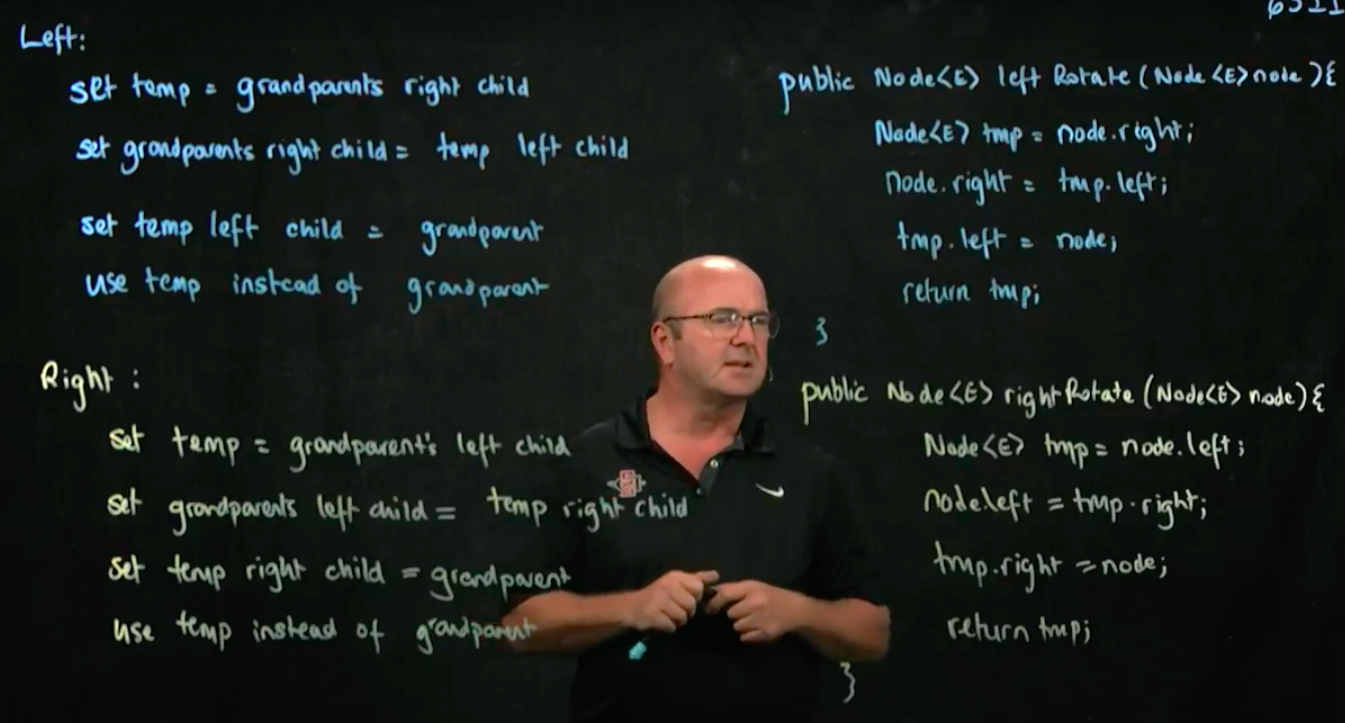 Left:
set temp = grandparents right child
set grandparents right child = temp left child
set temp left child = grandparent
use temp instead of grandparent
Right :
set temp = grandparent's left child
set grandparents left child = temp right child
set temp right child = grandparent
use temp instead of grandparent
public Node<E> left Rotate (Node <E> node ){
Node<E> tmp = node.right;
node.right = tmp.left;
tmp.left = node;
return tmp;
}
public Node<E> rightRotate (Node<E> node){
Node<E> tmp = node.left;
node.left = tmp.right;
tmp.right = node;
return tmp;
}